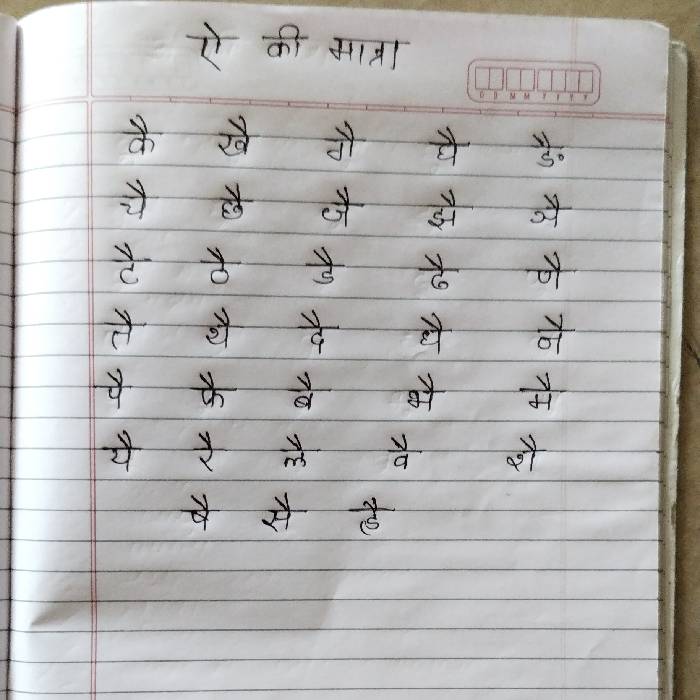 ऐ की मात्रा
D D M M Y Y Y Y
कै खै गै घै ङै
चै छै जै झै ञै
टै ठै डै ढै णै
तै थै दै धै नै
पै फै बै भै मै
यै रै लै वै शै
षै सै है